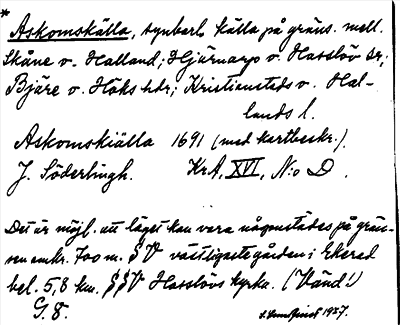 * Askomskälla, synbarl. källa på gräns. mell.
Skåne o. Halland; Hjärnarp o. Hasslöv sr;
Bjäre o. Höks hdr; Kristianstads o. Hal-
lands l.
Askomskiälla 1691 (med kartbeskr.).
J. Söderlingh. KrA, XVI, N:o D.
Det är möjl. att läget kan vara någonstädes på grän-
sen omkr. 700 m. SV västligaste gården i Ekered
bel. 5,8 km. SSV Hasslövs kyrka. (Vänd!)
G. 8. 1927.